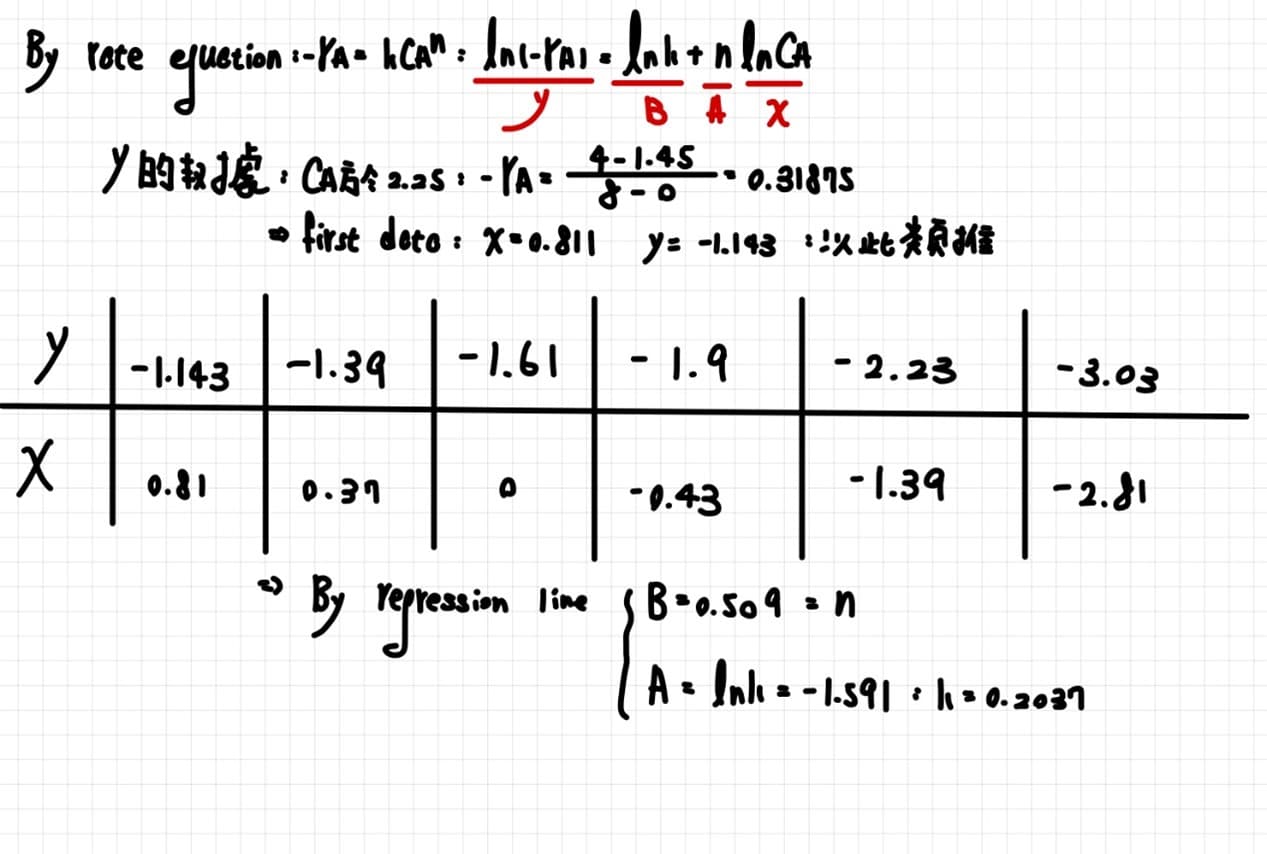 By rate equation : -rA = kCA^n : ln(-rA) = lnk + n lnCA
y B A x
y 的 : CA 2.25 : -rA = (4-1.45)/(8-0) = 0.31875
⇒ first data : x=0.811 y= -1.143 : 以此类推
y -1.143 -1.39 -1.61 -1.9 -2.23 -3.03
x 0.81 0.37 0 -0.43 -1.39 -2.81
⇒ By regression line { B=0.509 = n
A = lnk = -1.591 : k = 0.2037